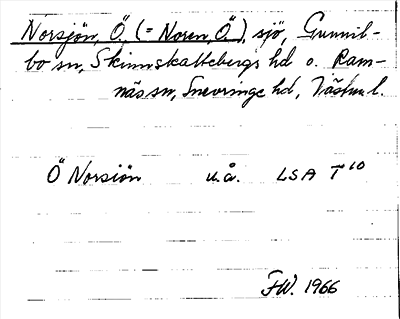 Norsjön, Ö. (= Noren, Ö.), sjö, Gunnil-
bo sn, Skinnskattebergs hd o. Ram-
näs sn, Snevringe hd, Västml.
Ö Norsiön u.å. LSA T 10
FW. 1966